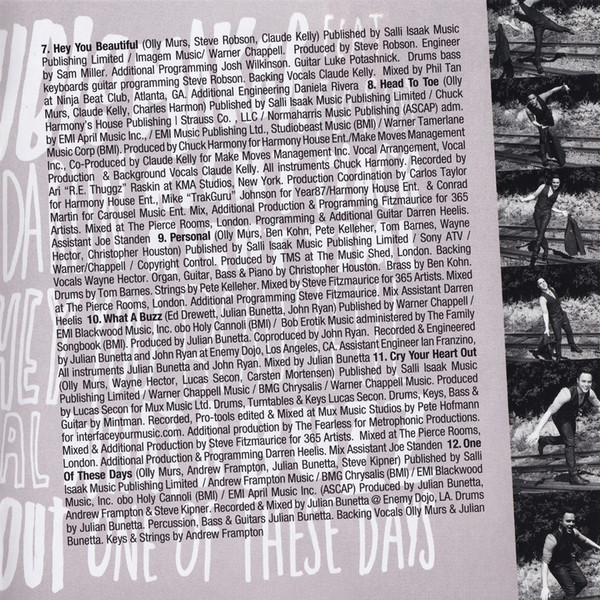 7. Hey You Beautiful (Olly Murs, Steve Robson, Claude Kelly) Published by Salli Isaak Music
Publishing Limited / Imagem Music/ Warner Chappell. Produced by Steve Robson. Engineer
by Sam Miller. Additional Programming Josh Wilkinson. Guitar Luke Potashnick. Drums bass
keyboards guitar programming Steve Robson. Backing Vocals Claude Kelly. Mixed by Phil Tan
at Ninja Beat Club, Atlanta, GA, Additional Engineering Daniela Rivera 8. Head To Toe (Olly
Murs, Claude Kelly, Charles Harmon) Published by Salli Isaak Music Publishing Limited / Chuck
Harmony's House Publishing | Strauss Co. , LLC / Normaharris Music Publishing (ASCAP) adm.
by EMI April Music Inc., / EMI Music Publishing Ltd., Studiobeast Music (BMI) / Warner Tamerlane
Music Corp (BMI). Produced by Chuck Harmony for Harmony House Ent./Make Moves Management
Inc., Co-Produced by Claude Kelly for Make Moves Management Inc. Vocal Arrangement, Vocal
Production & Background Vocals Claude Kelly. All instruments Chuck Harmony. Recorded by
Ari "R.E. Thuggz" Raskin at KMA Studios, New York. Production Coordination by Carlos Taylor
for Harmony House Ent., Mike "TrakGuru" Johnson for Year87/Harmony House Ent. & Conrad
Martin for Carousel Music Ent. Mix, Additional Production & Programming Fitzmaurice for 365
Artists. Mixed at The Pierce Rooms, London. Programming & Additional Guitar Darren Heelis.
Assistant Joe Standen 9. Personal (Olly Murs, Ben Kohn, Pete Kelleher, Tom Barnes, Wayne
Hector, Christopher Houston) Published by Salli Isaak Music Publishing Limited / Sony ATV /
Warner/Chappell / Copyright Control. Produced by TMS at The Music Shed, London. Backing
Vocals Wayne Hector. Organ, Guitar, Bass & Piano by Christopher Houston. Brass by Ben Kohn.
Drums by Tom Barnes. Strings by Pete Kelleher. Mixed by Steve Fitzmaurice for 365 Artists. Mixed
at The Pierce Rooms, London. Additional Programming Steve Fitzmaurice. Mix Assistant Darren
Heelis 10. What A Buzz (Ed Drewett, Julian Bunetta, John Ryan) Published by Warner Chappell /
EMI Blackwood Music, Inc. obo Holy Cannoli (BMI) / Bob Erotik Music administered by The Family
Songbook (BMI). Produced by Julian Bunetta. Coproduced by John Ryan. Recorded & Engineered
by Julian Bunetta and John Ryan at Enemy Dojo, Los Angeles, CA. Assistant Engineer Ian Franzino,
All instruments Julian Bunetta and John Ryan. Mixed by Julian Bunetta 11. Cry Your Heart Out
(Olly Murs, Wayne Hector, Lucas Secon, Carsten Mortensen) Published by Salli Isaak Music
Publishing Limited / Warner Chappell Music / BMG Chrysalis / Warner Chappell Music. Produced
by Lucas Secon for Mux Music Ltd. Drums, Turntables & Keys Lucas Secon. Drums, Keys, Bass &
Guitar by Mintman. Recorded, Pro-tools edited & Mixed at Mux Music Studios by Pete Hofmann
for interfaceyourmusic.com. Additional production by The Fearless for Metrophonic Productions.
Mixed & Additional Production by Steve Fitzmaurice for 365 Artists. Mixed at The Pierce Rooms,
London. Additional Production & Programming Darren Heelis. Mix Assistant Joe Standen 12. One
Of These Days (Olly Murs, Andrew Frampton, Julian Bunetta, Steve Kipner) Published by Salli
Isaak Music Publishing Limited / Andrew Frampton Music / BMG Chrysalis (BMI) / EMI Blackwood
Music, Inc. obo Holy Cannoli (BMI) / EMI April Music Inc. (ASCAP) Produced by Julian Bunetta,
Andrew Frampton & Steve Kipner. Recorded & Mixed by Julian Bunetta @ Enemy Dojo, LA. Drums
by Julian Bunetta. Percussion, Bass & Guitars Julian Bunetta. Backing Vocals Olly Murs & Julian
Bunetta. Keys & Strings by Andrew Frampton
OUT ONE OF THESE DAYS